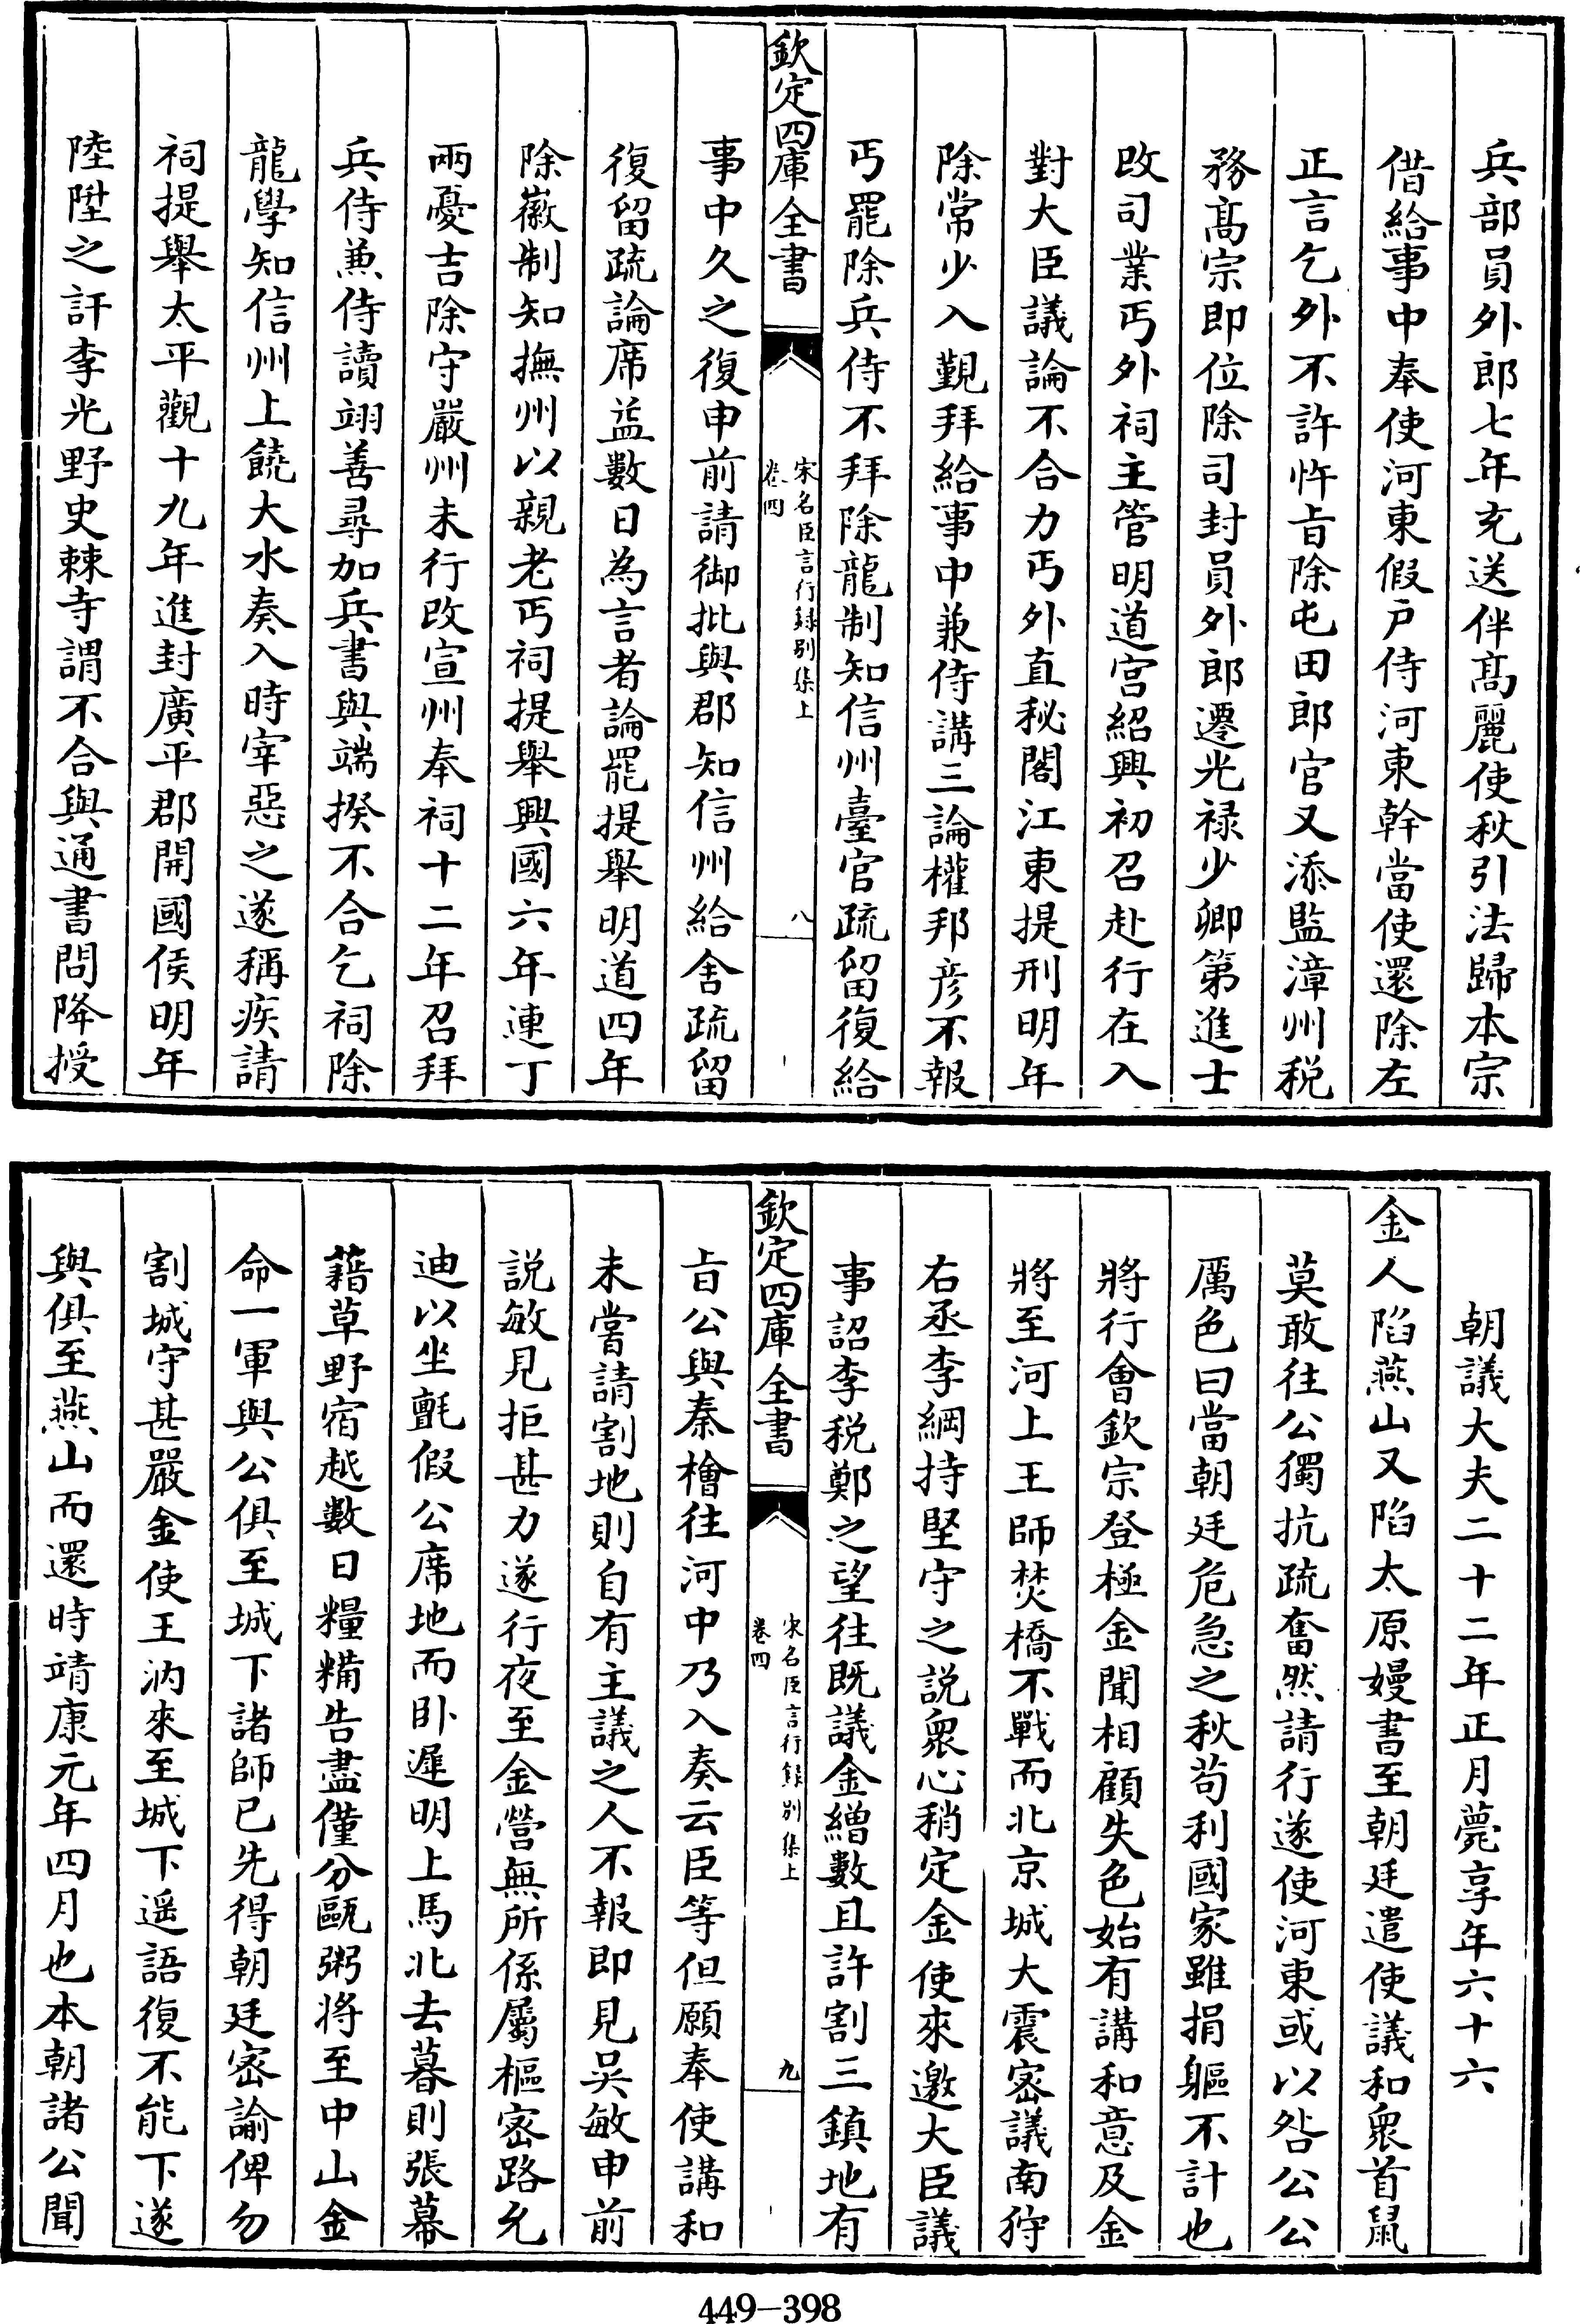 兵部員外郎七年充送伴髙麗使秋引法歸本宗
借給事中奉使河東假戸侍河東幹當使還除左
正言乞外不許忤㫖除屯田郎官又添監漳州税
務髙宗即位除司封員外郎遷光禄少卿第進士
改司業丐外祠主管明道宫紹興初召赴行在入
對大臣議論不合力丐外直秘閣江東提刑明年
除常少入覲拜給事中兼侍講三論權邦彦不報
丐罷除兵侍不拜除龍制知信州臺官疏留復給
欽定四庫全書
宋名臣言行録别集上
卷四
八
事中久之復申前請御批與郡知信州給舍疏留
復留疏論席益數日為言者論罷提舉明道四年
除徽制知撫州以親老丐祠提舉興國六年連丁
兩憂吉除守嚴州未行改宣州奉祠十二年召拜
兵侍兼侍讀翊善尋加兵書與端揆不合乞祠除
龍學知信州上饒大水奏入時宰惡之遂稱疾請
祠提舉太平觀十九年進封廣平郡開國侯明年
陸陞之訐李光野史棘寺謂不合與通書問降授
朝議大夫二十二年正月薨享年六十六
金人陷燕山又陷太原嫚書至朝廷遣使議和衆首鼠
莫敢往公獨抗疏奮然請行遂使河東或以咎公公
厲色曰當朝廷危急之秋苟利國家雖捐軀不計也
將行會欽宗登極金聞相顧失色始有講和意及金
將至河上王師焚橋不戰而北京城大震宻議南狩
右丞李綱持堅守之説衆心稍定金使來邀大臣議
事詔李税鄭之望往既議金繒數且許割三鎮地有
欽定四庫全書
宋名臣言行録别集上
卷四
九
㫖公與秦檜往河中乃入奏云臣等但願奉使講和
未嘗請割地則自有主議之人不報即見吳敏申前
説敏見拒甚力遂行夜至金營無所係屬樞宻路允
迪以坐氈假公席地而卧遲明上馬北去暮則張幕
藉草野宿越數日糧糒告盡僅分甌粥将至中山金
命一軍與公俱至城下諸師已先得朝廷宻諭俾勿
割城守甚嚴金使王汭來至城下遥語復不能下遂
與俱至燕山而還時靖康元年四月也本朝諸公聞
449-398